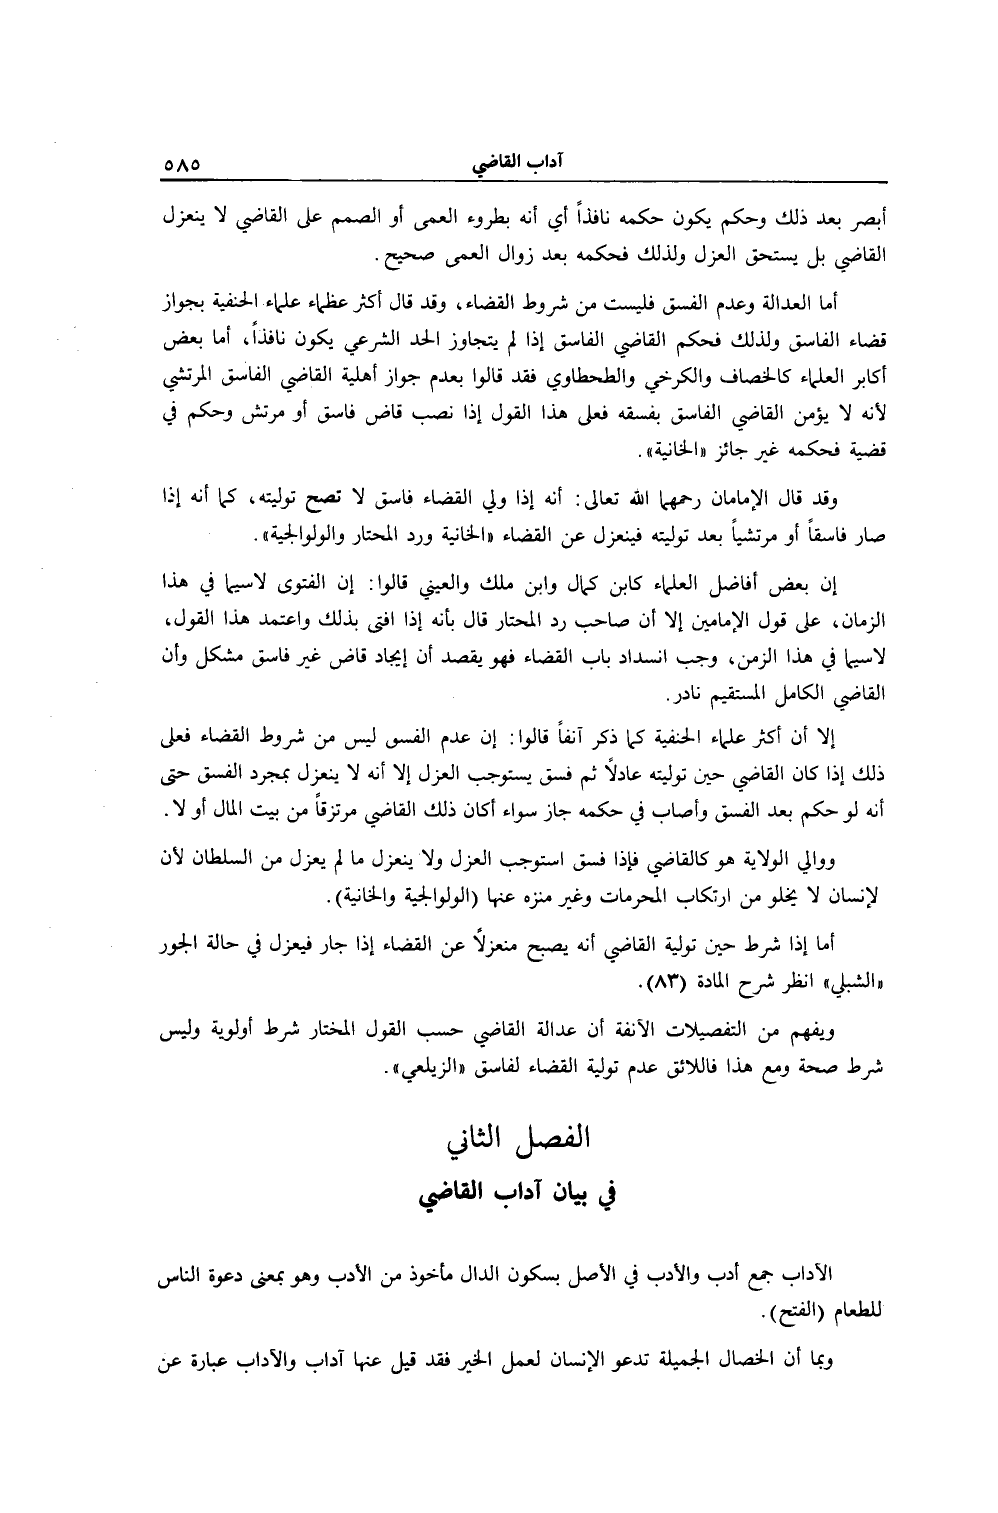 آداب القاضي ٥٨٥
أبصر بعد ذلك وحكم يكون حكمه نافذاً أي أنه بطروء العمى أو الصمم على القاضي لا ينعزل
القاضي بل يستحق العزل ولذلك فحكمه بعد زوال العمى صحيح.
أما العدالة وعدم الفسق فليست من شروط القضاء، وقد قال أكثر عظماء علماء الحنفية بجواز
قضاء الفاسق ولذلك فحكم القاضي الفاسق إذا لم يتجاوز الحد الشرعي يكون نافذاً، أما بعض
أكابر العلماء كالخصاف والكرخي والطحطاوي فقد قالوا بعدم جواز أهلية القاضي الفاسق المرتشي
لأنه لا يؤمن القاضي الفاسق بفسقه فعلى هذا القول إذا نصب قاض فاسق أو مرتش وحكم في
قضية فحكمه غير جائز «الخانية».
وقد قال الإمامان رحمهما الله تعالى: أنه إذا ولي القضاء فاسق لا تصح توليته، كما أنه إذا
صار فاسقاً أو مرتشياً بعد توليته فينعزل عن القضاء «الخانية ورد المحتار والولوالجية».
إن بعض أفاضل العلماء كابن كمال وابن ملك والعيني قالوا: إن الفتوى لاسيما في هذا
الزمان، على قول الإمامين إلا أن صاحب رد المحتار قال بأنه إذا افتى بذلك واعتمد هذا القول،
لاسيما في هذا الزمن، وجب انسداد باب القضاء فهو يقصد أن إيجاد قاض غير فاسق مشكل وأن
القاضي الكامل المستقيم نادر.
إلا أن أكثر علماء الحنفية كما ذكر آنفاً قالوا: إن عدم الفسق ليس من شروط القضاء فعلى
ذلك إذا كان القاضي حين توليته عادلاً ثم فسق يستوجب العزل إلا أنه لا ينعزل بمجرد الفسق حتى
أنه لو حكم بعد الفسق وأصاب في حكمه جاز سواء أكان ذلك القاضي مرتزقاً من بيت المال أو لا.
ووالي الولاية هو كالقاضي فإذا فسق استوجب العزل ولا ينعزل ما لم يعزل من السلطان لأن
لإنسان لا يخلو من ارتكاب المحرمات وغير منزه عنها (الولوالجية والخانية).
أما إذا شرط حين تولية القاضي أنه يصبح منعزلاً عن القضاء إذا جار فيعزل في حالة الجور
«الشبلي» انظر شرح المادة (٨٣).
ويفهم من التفصيلات الآنفة أن عدالة القاضي حسب القول المختار شرط أولوية وليس
شرط صحة ومع هذا فاللائق عدم تولية القضاء لفاسق «الزيلعي».
الفصل الثاني
في بيان آداب القاضي
الآداب جمع أدب والأدب في الأصل بسكون الدال مأخوذ من الأدب وهو بمعنى دعوة الناس
للطعام (الفتح).
وبما أن الخصال الجميلة تدعو الإنسان لعمل الخير فقد قيل عنها آداب والآداب عبارة عن